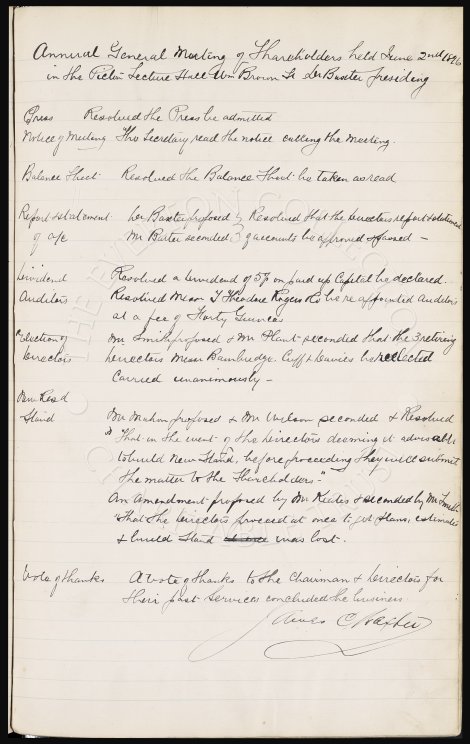 Annual General Meeting of Shareholders held June 2nd 1896
in the Picton Lecture Hall Wm Brown St Dr Baxter presiding
Press Resolved the Press be admitted
Notice of Meeting The Secretary read the notice calling the Meeting.
Balance Sheet Resolved the Balance Sheet be taken as read
Report & statement Dr Baxter proposed } Resolved that the Directors report & statement
of a/c Mr Barter seconded } of accounts be approved & passed —
Dividend Resolved a Dividend of 5% on paid up Capital be declared.
Auditors Resolved Messrs T Theodore Rogers be re appointed Auditors
at a fee of Forty Guineas
Election of Mr Smith proposed & Mr Plant seconded that the 3 retiring
Directors Directors Messrs Bainbridge. Cuff & Davies be reelected
Carried unanimously —
Stand Mr Mahon proposed & Mr Wilson seconded & Resolved
"That in the event of the Directors deeming it advisable
to build New Stand, before proceeding they will submit
the matter to the Shareholders."
An amendment proposed by Mr Keates & seconded by Mr Smith
"That the Directors proceed at once to get plans, estimates
& build Stand was lost.
Vote of thanks A vote of thanks to the Chairman & Directors for
their past services concluded the business
James C Baxter